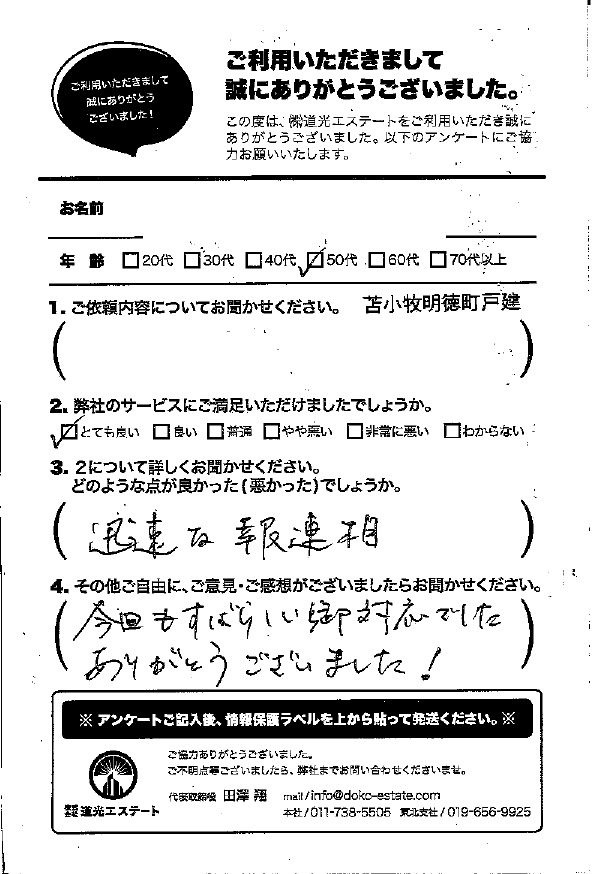 ご利用いただきまして
誠にありがとう
ございました！
ご利用いただきまして
誠にありがとうございました。
この度は、㈱道光エステートをご利用いただき誠に
ありがとうございました。以下のアンケートにご協
力お願いいたします。
お名前
年齢 □20代 □30代 □40代 ☑50代 □60代 □70代以上
1. ご依頼内容についてお聞かせください。 苫小牧明徳町戸建
2. 弊社のサービスにご満足いただけましたでしょうか。
☑とても良い □良い □普通 □やや悪い □非常に悪い □わからない
3. 2について詳しくお聞かせください。
どのような点が良かった(悪かった)でしょうか。
迅速な報連相
4. その他ご自由に、ご意見・ご感想がございましたらお聞かせください。
今回もすばらしい御対応でした
ありがとうございました！
※ アンケートご記入後、情報保護ラベルを上から貼って発送ください。※
ご協力ありがとうございました。
ご不明点等ございましたら、弊社までお問い合わせくださいませ。
代表取締役 田澤 翔 mail/info@doko-estate.com
株式会社道光エステート 本社/011-738-5505 東北支社/019-656-9925